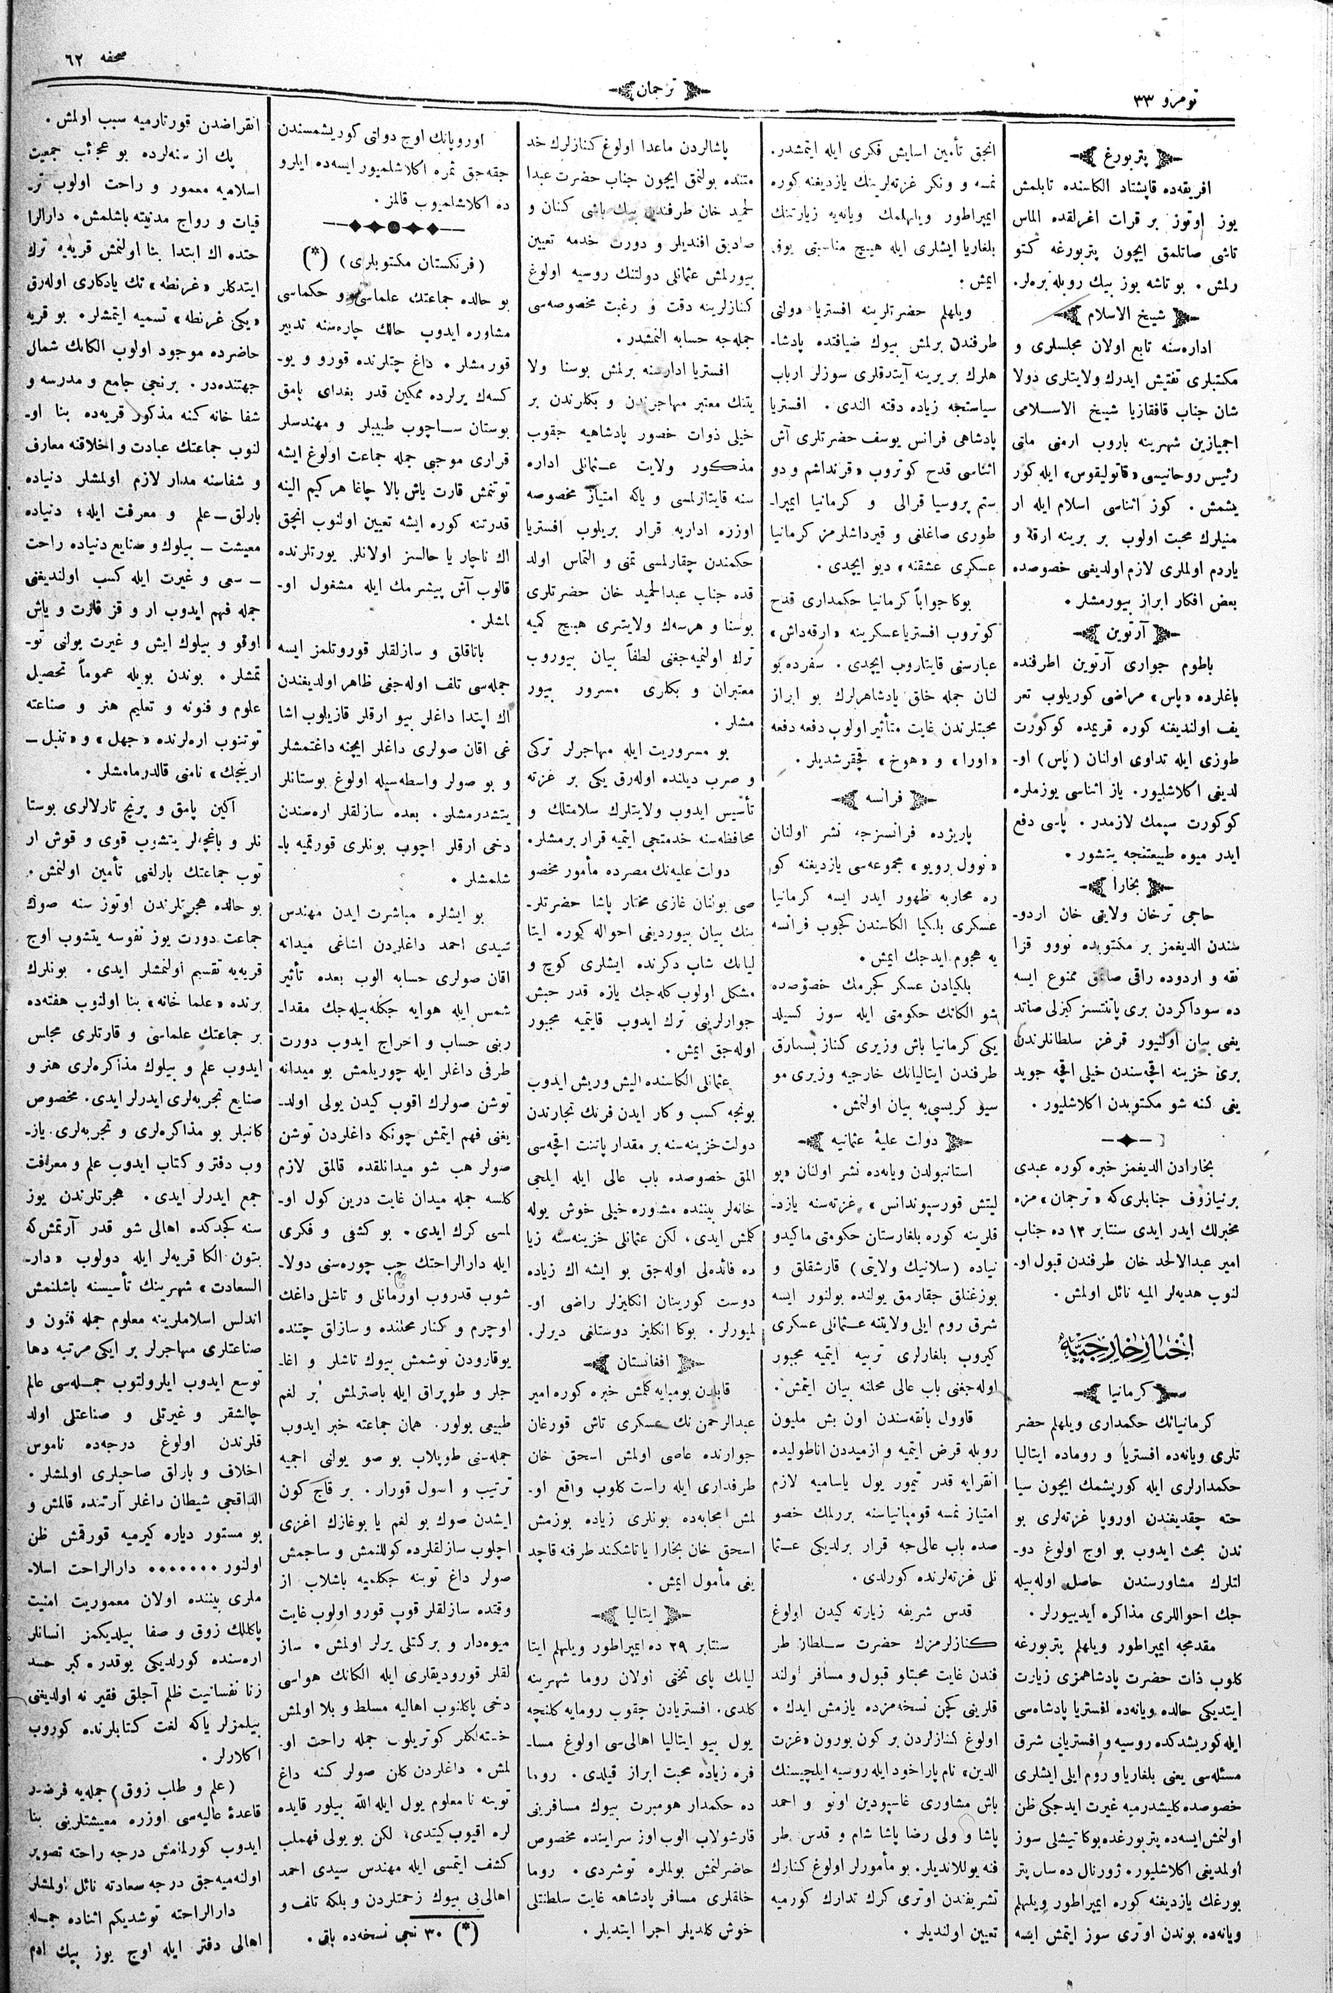 نومرو ٣٣
ترجمان
صحفه ٦٢
پتربورغ
افریقه‌ده قاپشتاد الكاسنده تابلمش
یوز اوتوز بر قرات اغرلقده الماس
تاشی صاتلمق ایچون پتربورغه كتو
رلمش . بو تاشه یوز بیك روبله بره‌لر.
شیخ الاسلام
اداره‌سنه تابع اولان مجلسلری و
مكتبلری تفتیش ایدرك ولایتلری دولا
شان جناب قافقازیا شیخ الاســلامی
اجمیازین شهرینه باروب ارمنی ملتی
رئیس روحانیسی «قاتولیقوس» ایله كور
یشمش . كوز اثناسی اسلام ایله ار
منیلرك محبت اولوب بر برینه ارقه و
یاردم اولملری لازم اولدیغی خصوصده
بعض افكار ابراز بیورمشلر .
آرتوین
باطوم جواری آرتوین اطرفنده
باغلرده «پاس» مراضی كوریلوب تعر
یف اولندیغنه كوره قریمده كوكورت
طوزی ایله تداوی اولنان (پاس) او-
لدیغی اكلاشلیور. یاز اثناسی یوزملره
كوكورت سپمك لازمدر . پاسی دفع
ایدر میوه طبیعتنجه یتشور .
بخارا
حاجی ترخان ولایتی خان اردو-
سندن الدیغمز بر مكتوبده نووو قزا
نقه و اردوده راقی صاتمق ممنوع ایسه
ده سوداكردن بری پاتنتسز كیزلی صاتد
یغی بیان اولنیور قرغز سلطانلرندن
بری خزینه اقچه‌سندن خیلی اقچه جوید
یغی كنه شو مكتوبدن اكلاشلیور .
بخارادن الدیغمز خبره كوره عبدی
برنیازوف جنابلری‌كه «ترجمان» مزه
مخبرلك ایدر ایدی سنتابر ١٣ ده جناب
امیر عبدالاحد خان طرفندن قبول او-
لنوب هدیه‌لر المیه نائل اولمش .
اخبار خارجیه
كرمانیا
كرمانیانك حكمداری ویلهلم حضر
تلری ویانه‌ده افستریا و روماده ایتالیا
حكمدارلری ایله كوریشمك ایچون سیا
حته چقدیغندن اوروپا غزته‌لری بو
ندن بحث ایدوب بو اوج اولوغ دو-
لتلرك مشاورسندن حاصل اوله‌بیله
جك احواللری مذاكره ایدییورلر .
مقدمجه ایمپراطور ویلهلم پتربورغه
كلوب ذات حضرت پادشاهمزی زیارت
ایتدیكی حالده ویانه‌ده افستریا پادشاه‌سی
ایله كوریشدكده روسیه و افستریایی شرق
مسئله‌سی یعنی بلغاریا و روم ایلی ایشلری
خصوصده كلیشدرمیه غیرت ایدجكی ظن
اولنمش ایسه‌ده پتربورغده بوكا تیشلی سوز
اولمدیغی اكلاشلیور . ژورنال ده سان پتر
بورغك یازدیغنه كوره ایمپراطور ویلهلم
ویانه‌ده بوندن اوتری سوز ایتمش ایسه
انجق تأمین اسایش فكری ایله ایتمشدر.
نمسه و ونكر غزته‌لرینك یازدیغنه كوره
ایمپراطور ویلهلمك ویانه‌یه زیارتنك
بلغاریا ایشلری ایله هیچ مناسبتی یوق
ایمش .
ویلهلم حضرتلرینه افستریا دولتی
طرفندن برلمش بیوك ضیافتده پادشا-
هلرك بر برینه آیتدقلری سوزلر ارباب
سیاستجه زیاده دقته الندی . افستریا
پادشاهی فرانس یوسف حضرتلری آش
اثناسی قدح كوتروب «قرنداشم و دو
ستم پروسیا قرالی و كرمانیا ایمپرا-
طوری صاغلغی و قیرداشلرمز كرمانیا
عسكری عشقنه» دیو ایچدی .
بوكا جواباً كرمانیا حكمداری قدح
كوتروب افستریا عسكرینه «ارقه‌داش»
عبارسنی قایتاروب ایچدی . سفرده بو
لنان جمله خلق پادشاهلرك بو ابراز
محبتلرندن غایت متأثر اولوب دفعه دفعه
«اورا» و «هوخ» قچقرشدیلر .
فرانسه
پاریژده فرانسزجه نشر اولنان
«نوول رویو» مجموعه‌سی یازدیغنه كو
ره محاربه ظهور ایدر ایسه كرمانیا
عسكری بلكیا الكاسندن كچوب فرانسه
یه هجوم ایدجك ایمش .
بلكیادن عسكر كچرمك خصوصده
شو الكانك حكومتی ایله سوز كسیلد
یكی كرمانیا باش وزیری كناز بسمارق
طرفندن ایتالیانك خارجیه وزیری مو
سیو كریسپی‌یه بیان اولنمش .
دولت علیهٔ عثمانیه
استانبولدن ویانه‌ده نشر اولنان «پو
لیتش قورسپوندانس» غزته‌سنه یازد-
قلرینه كوره بلغارستان حكومتی ماكیدو
نیاده (سلانیك ولایتی) قارشقلق و
بوزغنلق چقارمق یولنده بولنور ایسه
شرق روم ایلی ولایتنه عــثمانلی عسكری
كیروب بلغارلری تربیه ایتمیه مجبور
اوله‌جغنی باب عالی محلنه بیان ایتمش .
قاوول بانقه‌سندن اون بش ملیون
روبله قرض ایتمیه و ازمیددن اناطولیده
انقرایه قدر تیمور یول یاسامیه لازم
امتیاز نمسه قومپانیاسنه بررلمك خصو
صده باب عالی‌جه قرار برلدیكی عــثما
نلی غزته‌لرنده كورلدی .
قدس شریفه زیارته كیدن اولوغ
كنازلرمزك حضرت ســلطان طر
فندن غایت محبتلو قبول و مسافر اولند
قلرینی كچن نسخه‌مزده یازمش ایدك .
اولوغ كنازلردن بر كون بورون «عزت
الدین» نام پاراخود ایله روسیه ایلچیسنك
باش مشاوری غاسپودین اونو و احمد
پاشا و ولی رضا پاشا شام و قدس طر
فنه یوللاندیلر . بو مأمورلر اولوغ كنارك
تشریفندن اوتری كرك تدارك كورمیه
تعیین اولندیلر .
پاشالردن ماعدا اولوغ كنازلرك خد
متنده بولنمق ایچون جناب حضرت عبدا
لحمید خان طرفندن بیك باشی كنان و
صادیق افندیلر و دورت خدمه تعیین
بیورلمش عثمانلی دولتنك روسیه اولوغ
كنازلرینه دقت و رغبت مخصوصه‌سی
جمله‌جه حسابه النمشدر .
افستریا اداره‌سنه برلمش بوسنا ولا
یتنك معتبر مهاجرندن و بكلرندن بر
خیلی ذوات حضور پادشاهیه چقوب
مذكور ولایت عــثمانلی اداره
سنه قایتارلمسی و یاكه امتیاز مخصوصه
اوزره اداریه قرار بریلوب افستریا
حكمندن چقارلمسی تمنی و التماس اولد
قده جناب عبدالحمید خان حضرتلری
بوسنا و هرسك ولایتلری هیچ كمیه
ترك اولنمیه‌جغنی لطفاً بیان بیوروب
معتبران و بكلری مسرور بیور
مشلر .
بو مسروریت ایله مهاجرلر تركی
و صرب دیلنده اوله‌رق یكی بر غزته
تأسیس ایدوب ولایتلرك سلامتلك و
محافظه‌سنه خدمتجی ایتمیه قرار برمشلر.
دولت علیه‌نك مصرده مأمور مخصو
صی بولنان غازی مختار پاشا حضرتلر-
ینك بیان بیوردیغی احواله كوره ایتا
لیانك شاپ دكرنده ایشلری كوچ و
مشكل اولوب كله‌جك یازه قدر حبش
جوارلرینی ترك ایدوب قایتمیه مجبور
اوله‌جق ایمش .
عثمانلی الكاسنده الیش وریش ایدوب
بونجه كسب و كار ایدن فرنك تجارندن
دولت خزینه‌سنه بر مقدار پاتنت اقچه‌سی
المق خصوصده باب عالی ایله ایلچی
خانه‌لر بیننده مشاوره خیلی خوش یوله
كلمش ایدی. لكن عثمانلی خزینه‌سنه زیا
ده فائده‌لی اوله‌جق بو ایشه اك زیاده
دوست كورینان انكلیزلر راضی او-
لمیورلر. بوكا انكلیز دوستلغی دیرلر.
افغانستان
قابلدن بومبایه كلمش خبره كوره امیر
عبدالرحمن نك عسكری تاش قورغان
جوارنده عاصی اولمش اسحق خان
طرفداری ایله راست كلوب واقع او-
لمش محابه‌ده بونلری زیاده بوزمش
اسحق خان بخارا یا تاشكند طرفنه قاچد
یغی مأمول ایمش .
ایتالیا
سنتابر ٢٩ ده ایمپراطور ویلهلم ایتا
لیانك پای تختی اولان روما شهرینه
كلدی. افستریادن چقوب رومایه كلنجه
یول بیو ایتالیا اهالی‌سی اولوغ مسا-
فره زیاده محبت ابراز قیلدی . روما
ده حكمدار هومبرت بیوك مسافرینی
قارشولاب الوب اوز سراینده مخصوص
حاضرلنمش بولملره توشردی . روما
خلقلری مسافر پادشاهه غایت سلطنتلی
خوش كلدیلر اجرا ایتدیلر .
اوروپانك اوج دولتی كوریشمسندن
چقه‌جق ثمره اكلاشلمیور ایسه‌ده ایلرو
ده اكلاشلمیوب قالمز .
(فرنكستان مكتوبلری) (*)
بو حالده جماعتك علماسی و حكماسی
مشاوره ایدوب حالك چاره‌سنه تدبیر
قورمشلر . داغ چتلرنده قورو و یو-
كسك یرلرده ممكین قدر بغدای پامق
بوستان ســاچوب طبیبلر و مهندسلر
قراری موجبی جمله جماعت اولوغ ایشه
توتنمش قارت یاش بالا چاغا هر كیم الینه
قدرتنه كوره ایشه تعیین اولنوب انجق
اك ناچار یا حالسز اولانلر یورتلرنده
قالوب آش پیشرمك ایله مشغول او-
لمشلر .
باتاقلق و سازلقلر قوروتلمز ایسه
جمله‌سی تلف اوله‌جغی ظاهر اولدیغندن
اك اپتدا داغلر بیو ارقلر قازیلوب اشا
غی اقان صولری داغلر ایچنه داغتمشلر
و بو صولر واسطه‌سیله اولوغ بوستانلر
یتشدرمشلر. بعده سازلقلر اره‌سندن
دخی ارقلر اچوب بونلری قورتمیه با-
شلمشلر .
بو ایشلره مباشرت ایدن مهندس
سیدی احمد داغلردن اشاغی میدانه
اقان صولری حسابه الوب بعده تأثیر
شمس ایله هوایه چكله‌بیله‌جك مقدا-
رینی حساب و اخراج ایدوب دورت
طرفی داغلر ایله چوریلمش بو میدانه
توشن صولرك اقوب كیدن یولی اولد-
یغنی فهم ایتمش چونكه داغلردن توشن
صولر هب شو میدانلقده قالمق لازم
كلسه جمله میدان غایت درین كول او-
لمسی كرك ایدی . بو كشفی و فكری
ایله دارالراحتك چپ چوره‌سنی دولا-
شوب قدروب اورمانلی و تاشلی داغك
اوچرم و كنار محلنده و سازلق چتنده
یوقارودن توشمش بیوك تاشلر و اغا-
جلر و طوپراق ایله باصترلمش بر لغم
طبیعی بولور. همان جماعته خبر ایدوب
جمله‌سنی طوپلاب بو صو یولنی اچمیه
ترتیب و اسول قورار . بر قاچ كون
ایشدن صوك بو لغم یا بوغازك اغزی
اچلوب سازلقلرده كوللنمش و ساچمش
صولر داغ توبنه چكلمیه باشلاب از
وقتده سازلقلر قوپ قورو اولوب غایت
میوه‌دار و بركتلی یرلر اولمش . ساز
لقلر قورودیقلری ایله الكانك هواسی
دخی پاكلنوب اهالیه مسلط و بلا اولمش
خسته‌لكلر كوتریلوب جمله راحت او-
لمش . داغلردن كلن صولر كنه داغ
توبنه نا معلوم یول ایله الله بیلور قایده
لره اقیوب كیتدی. لكن بو یولی فهملب
كشف ایتمسی ایله مهندس سیدی احمد
اهالی‌یی بیوك زحمتلردن و بلكه تلف و
(*) ٣٠ نجی نسخه‌ده باق .
انقراضدن قورتارمیه سبب اولمش .
پك از سنه‌لرده بو عجائب جمعیت
اسلامیه معمور و راحت اولوب تر-
قیات و رواج مدنیته باشلمش . دارالرا
حتده اك ابتدا بنا اولنمش قریه‌یه ترك
ایتدكلر «غرنطه» نك یادكاری اوله‌رق
«یكی غرنطه» تسمیه ایتمشلر. بو قریه
حاضرده موجود اولوب الكانك شمال
جهتنده‌در . برنجی جامع و مدرسه و
شفا خانه كنه مذكور قریه‌ده بنا او-
لنوب جماعتك عبادت و اخلاقنه معارف
و شفاسنه مدار لازم اولمشلر دنیاده
بارلق — علم و معرفت ایله؛ دنیاده
معیشت — بیلوك و صنایع دنیاده راحت
— سعی و غیرت ایله كسب اولندیغنی
جمله فهم ایدوب ار و قز قارت و یاش
اوقو و بیلوك ایش و غیرت یولنی تو-
تمشلر . بوندن بویله عموماً تحصیل
علوم و فنونه و تعلیم هنر و صناعته
توتنوب اره‌لرنده «جهل» و «تنبل —
ارینجك» نامنی قالدرمامشلر .
اكین پامق و پرنچ تارلالری بوستا
نلر و باغچه‌لر یتشدیرب قوی و قوش ار
توب جماعتك بارلغی تأمین اولنمش .
بو حالده هجرتلرندن اوتوز سنه صوك
جماعت دورت یوز نفوسه یتشوب اوج
قریه‌یه تقسیم اولنمشلر ایدی . بونلرك
برنده «علما خانه» بنا اولنوب هفته‌ده
بر جماعتك علماسی و قارتلری مجلس
ایدوب علم و بیلوك مذاكره‌لری هنر و
صنایع تجربه‌لری ایدرلر ایدی. مخصوص
كاتبلر بو مذاكره‌لری و تجربه‌لری یاز-
وب دفتر و كتاب ایدوب علم و معرفت
جمع ایدرلر ایدی . هجرتلرندن یوز
سنه كچدكده اهالی شو قدر آرتمش‌كه
بتون الكا قریه‌لر ایله دولوب «دار-
السعادت» شهرینك تأسیسنه باشلنمش
اندلس اسلاملرینه معلوم جمله فنون و
صناعتلری مهاجرلر بر ایكی مرتبه دها
توسع ایدوب ایلرولتوب جمــله‌سی عالم
چالشقر و غیرتلی و صناعتلی اولد
قلرندن اولوغ درجه‌ده ناموس
اخلاف و بارلق صاحبلری اولمشلر .
الداقجی شیطان داغلر آرتنده قالمش و
بو مستور دیاره كیرمیه قورقمش ظن
اولنور ....... دارالراحت اسلا-
ملری بیننده اولان معموریت امنیت
پاكلك زوق و صفا بیلدیكمز انسانلر
اره‌سنده كورلدیكی یوقدر . كبر حسد
زنا نفسانیت ظلم آجلق فقیر نه اولدیغنی
بیلمزلر یاكه لغت كتابلرنده كوروب
اكلارلر .
(علم و طلب زوق) جمله‌یه فرضدر
قاعدهٔ عالیه‌سی اوزره معیشتلرینی بنا
ایدوب كورلمامش درجه راحته تصویر
اولنه‌میه‌جق درجه سعادته نائل اولمشلر
دارالراحته توشدیكم اثناده جمــله
اهالی دفتر ایله اوج یوز بیك ادم